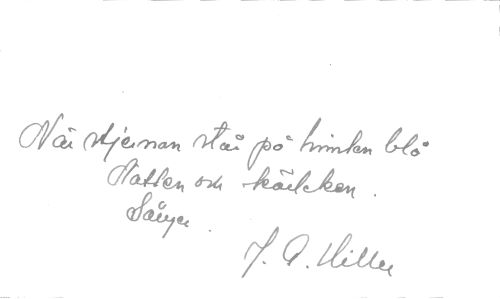 När stjernan står på himlen blå
Natten och kärleken.
Sånger.
J. A. Hiller